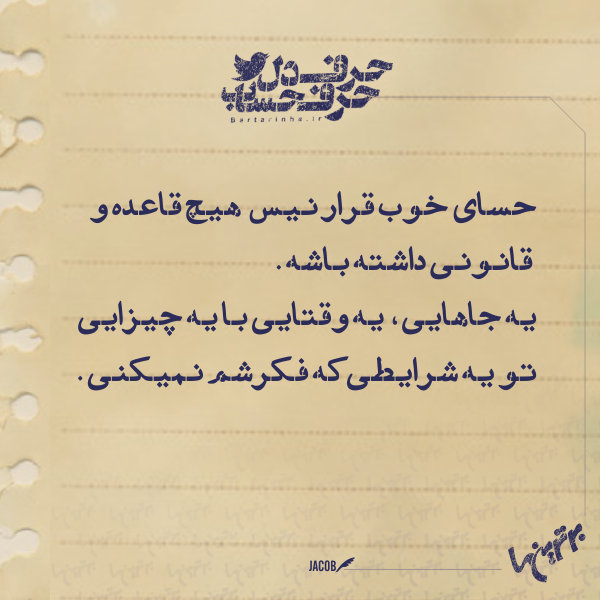 حرف دل
حرف حساب
Bartarinha.ir
حسای خوب قرار نیس هیچ قاعده و
قانونی داشته باشه.
یه جاهایی، یه وقتایی با یه چیزایی
تو یه شرایطی که فکرشم نمیکنی.
JACOB
برترین‌ها